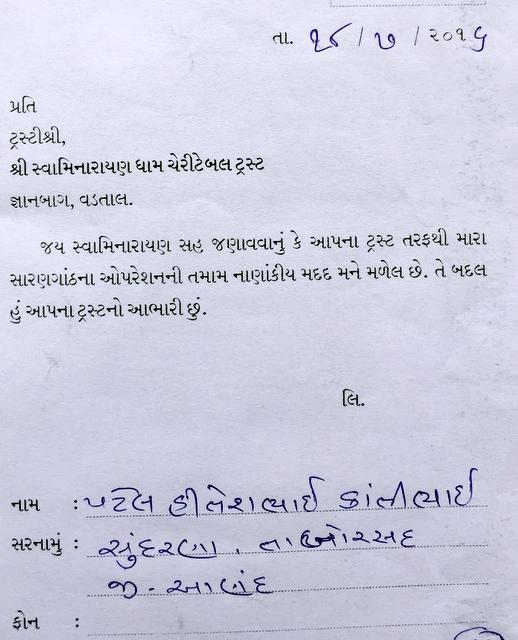 તા. ૧૮/૭/૨૦૧૬
પ્રતિ
ટ્રસ્ટીશ્રી,
શ્રી સ્વામિનારાયણ ધામ ચેરીટેબલ ટ્રસ્ટ
જ્ઞાનબાગ, વડતાલ.
જય સ્વામિનારાયણ સહ જણાવવાનું કે આપના ટ્રસ્ટ તરફથી મારા
સારણગાંઠના ઓપરેશનની તમામ નાણાંકીય મદદ મને મળેલ છે. તે બદલ
હું આપના ટ્રસ્ટનો આભારી છું.
લિ.
નામ : પટેલ હીતેશભાઈ કાંતીભાઈ
સરનામું : સુંદરણા. તા બોરસદ
જી - આણંદ
ફોન :